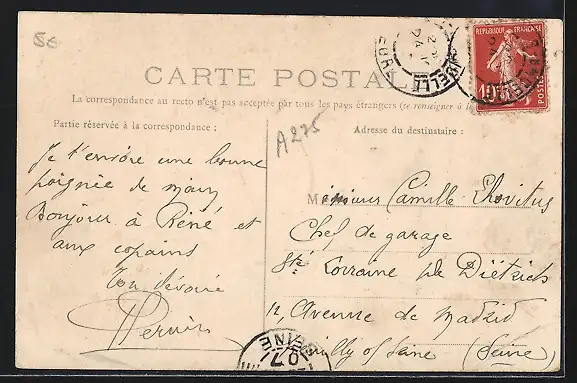 CARTE POSTALE
La correspondance au recto n'est pas acceptée par tous les pays étrangers (se renseigner à la
Partie réservée à la correspondance :
Adresse du destinataire :
A 275
Je t'envoie une bonne
poignée de main
Bonjour à Réné et
aux copains
Ton dévoué
Monsieur Camille
Chef de garage
Sté Lorraine de Diétrich
12, Avenue de Madrid
Neuilly s/ Seine (Seine)
REPUBLIQUE FRANÇAISE
10
POSTES
EURE
SEINE
07